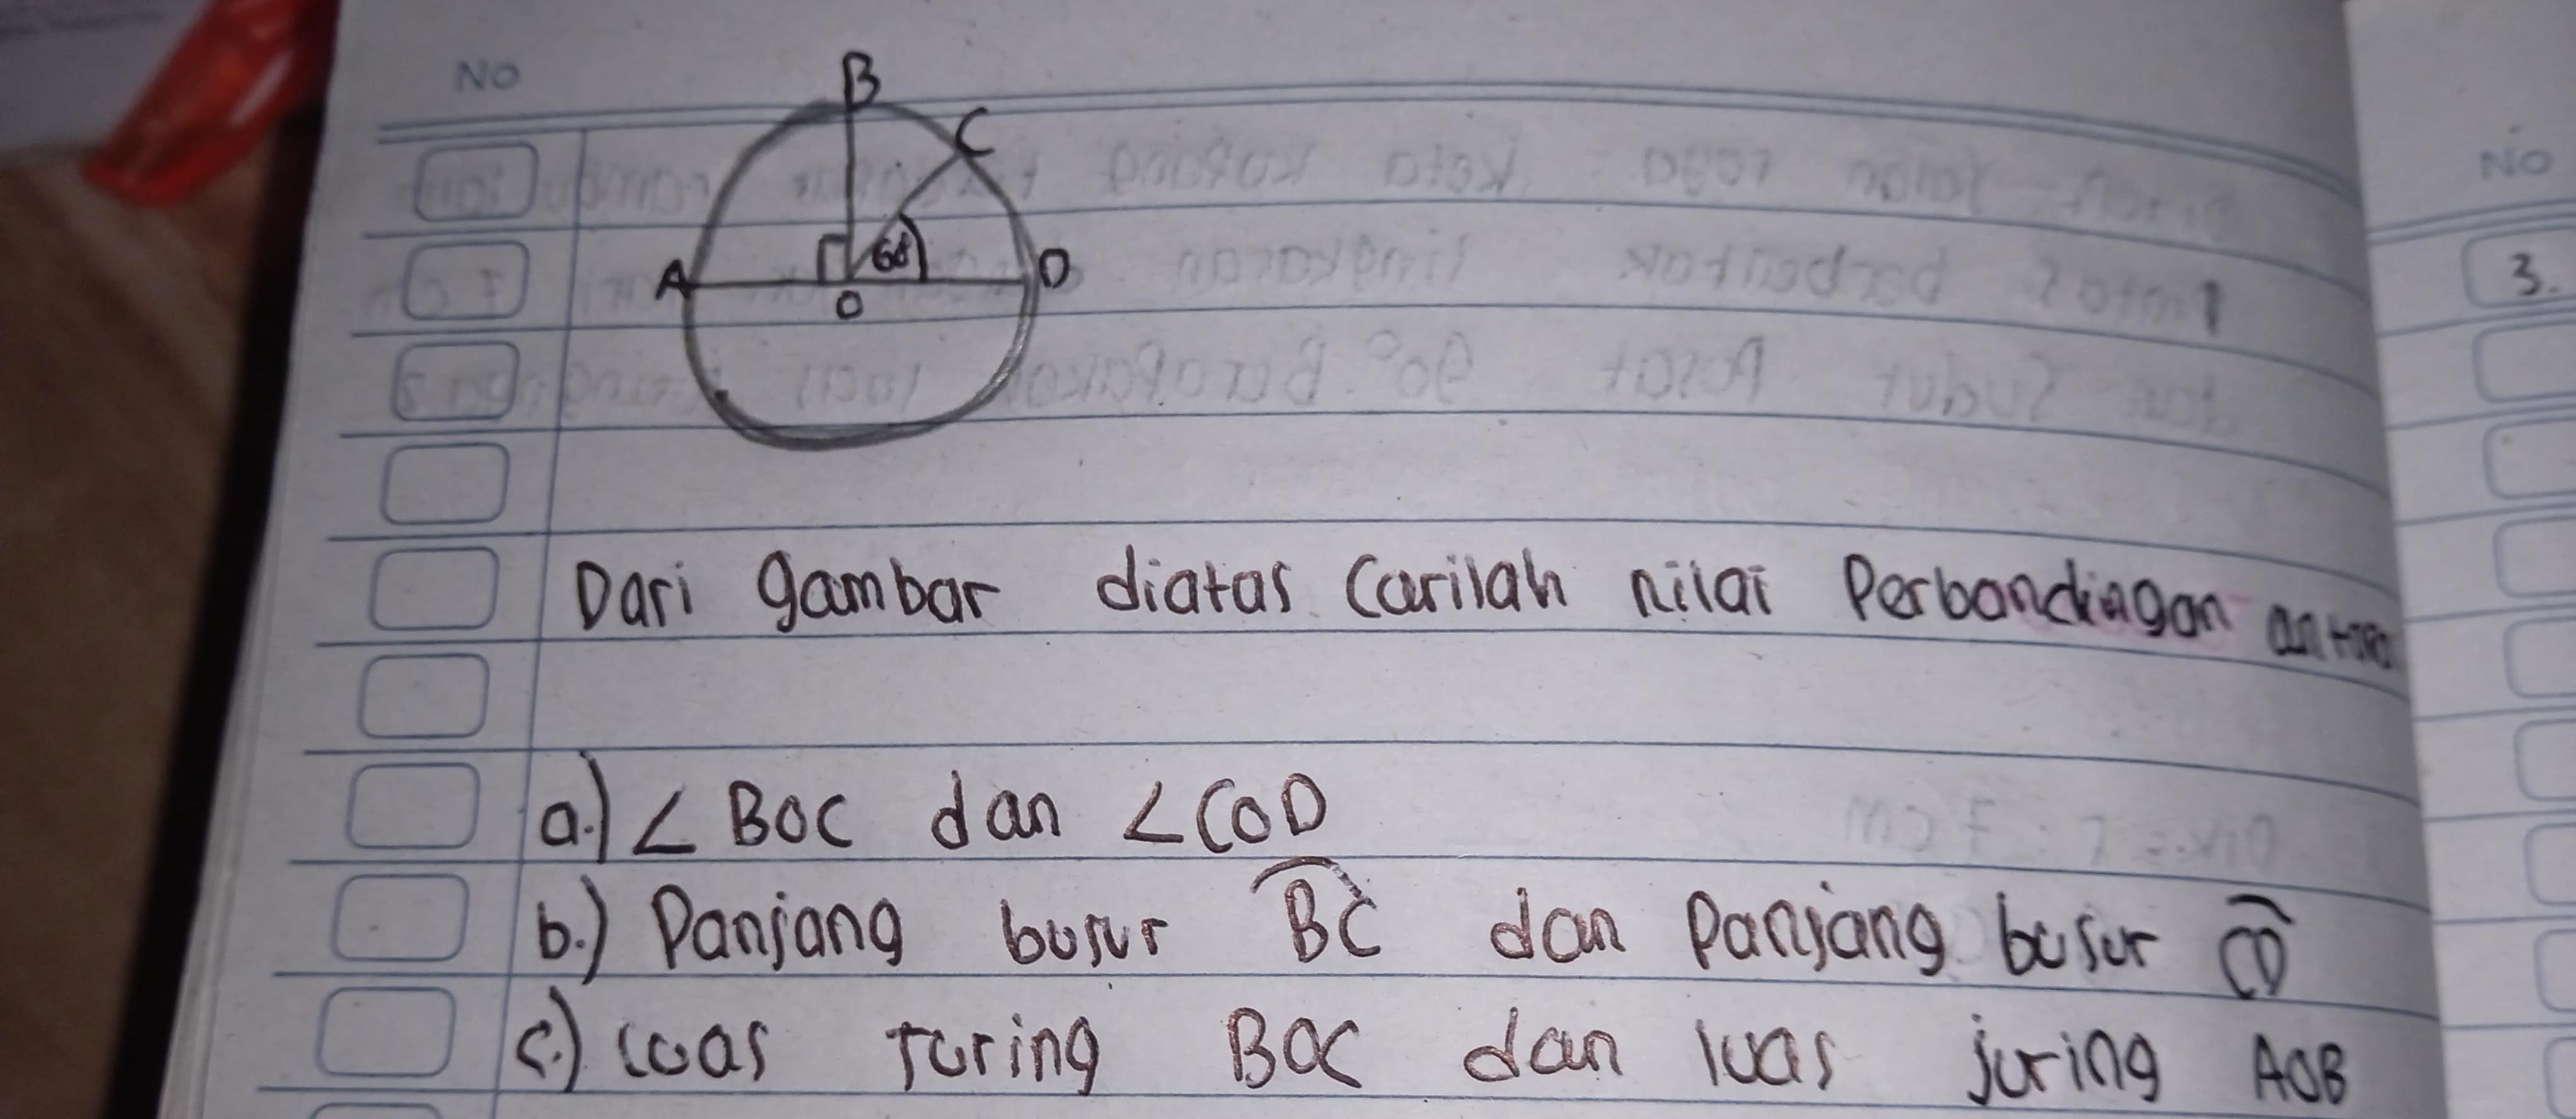 No
B
C
68
A
D
O
No
3.
Dari gambar diatas Carilah nilai Perbandingan antara
a.) ∠ BOC dan ∠COD
b.) Panjang busur B͡C dan Panjang busur C͡D
c.) Luas Juring BOC dan luas juring AOB